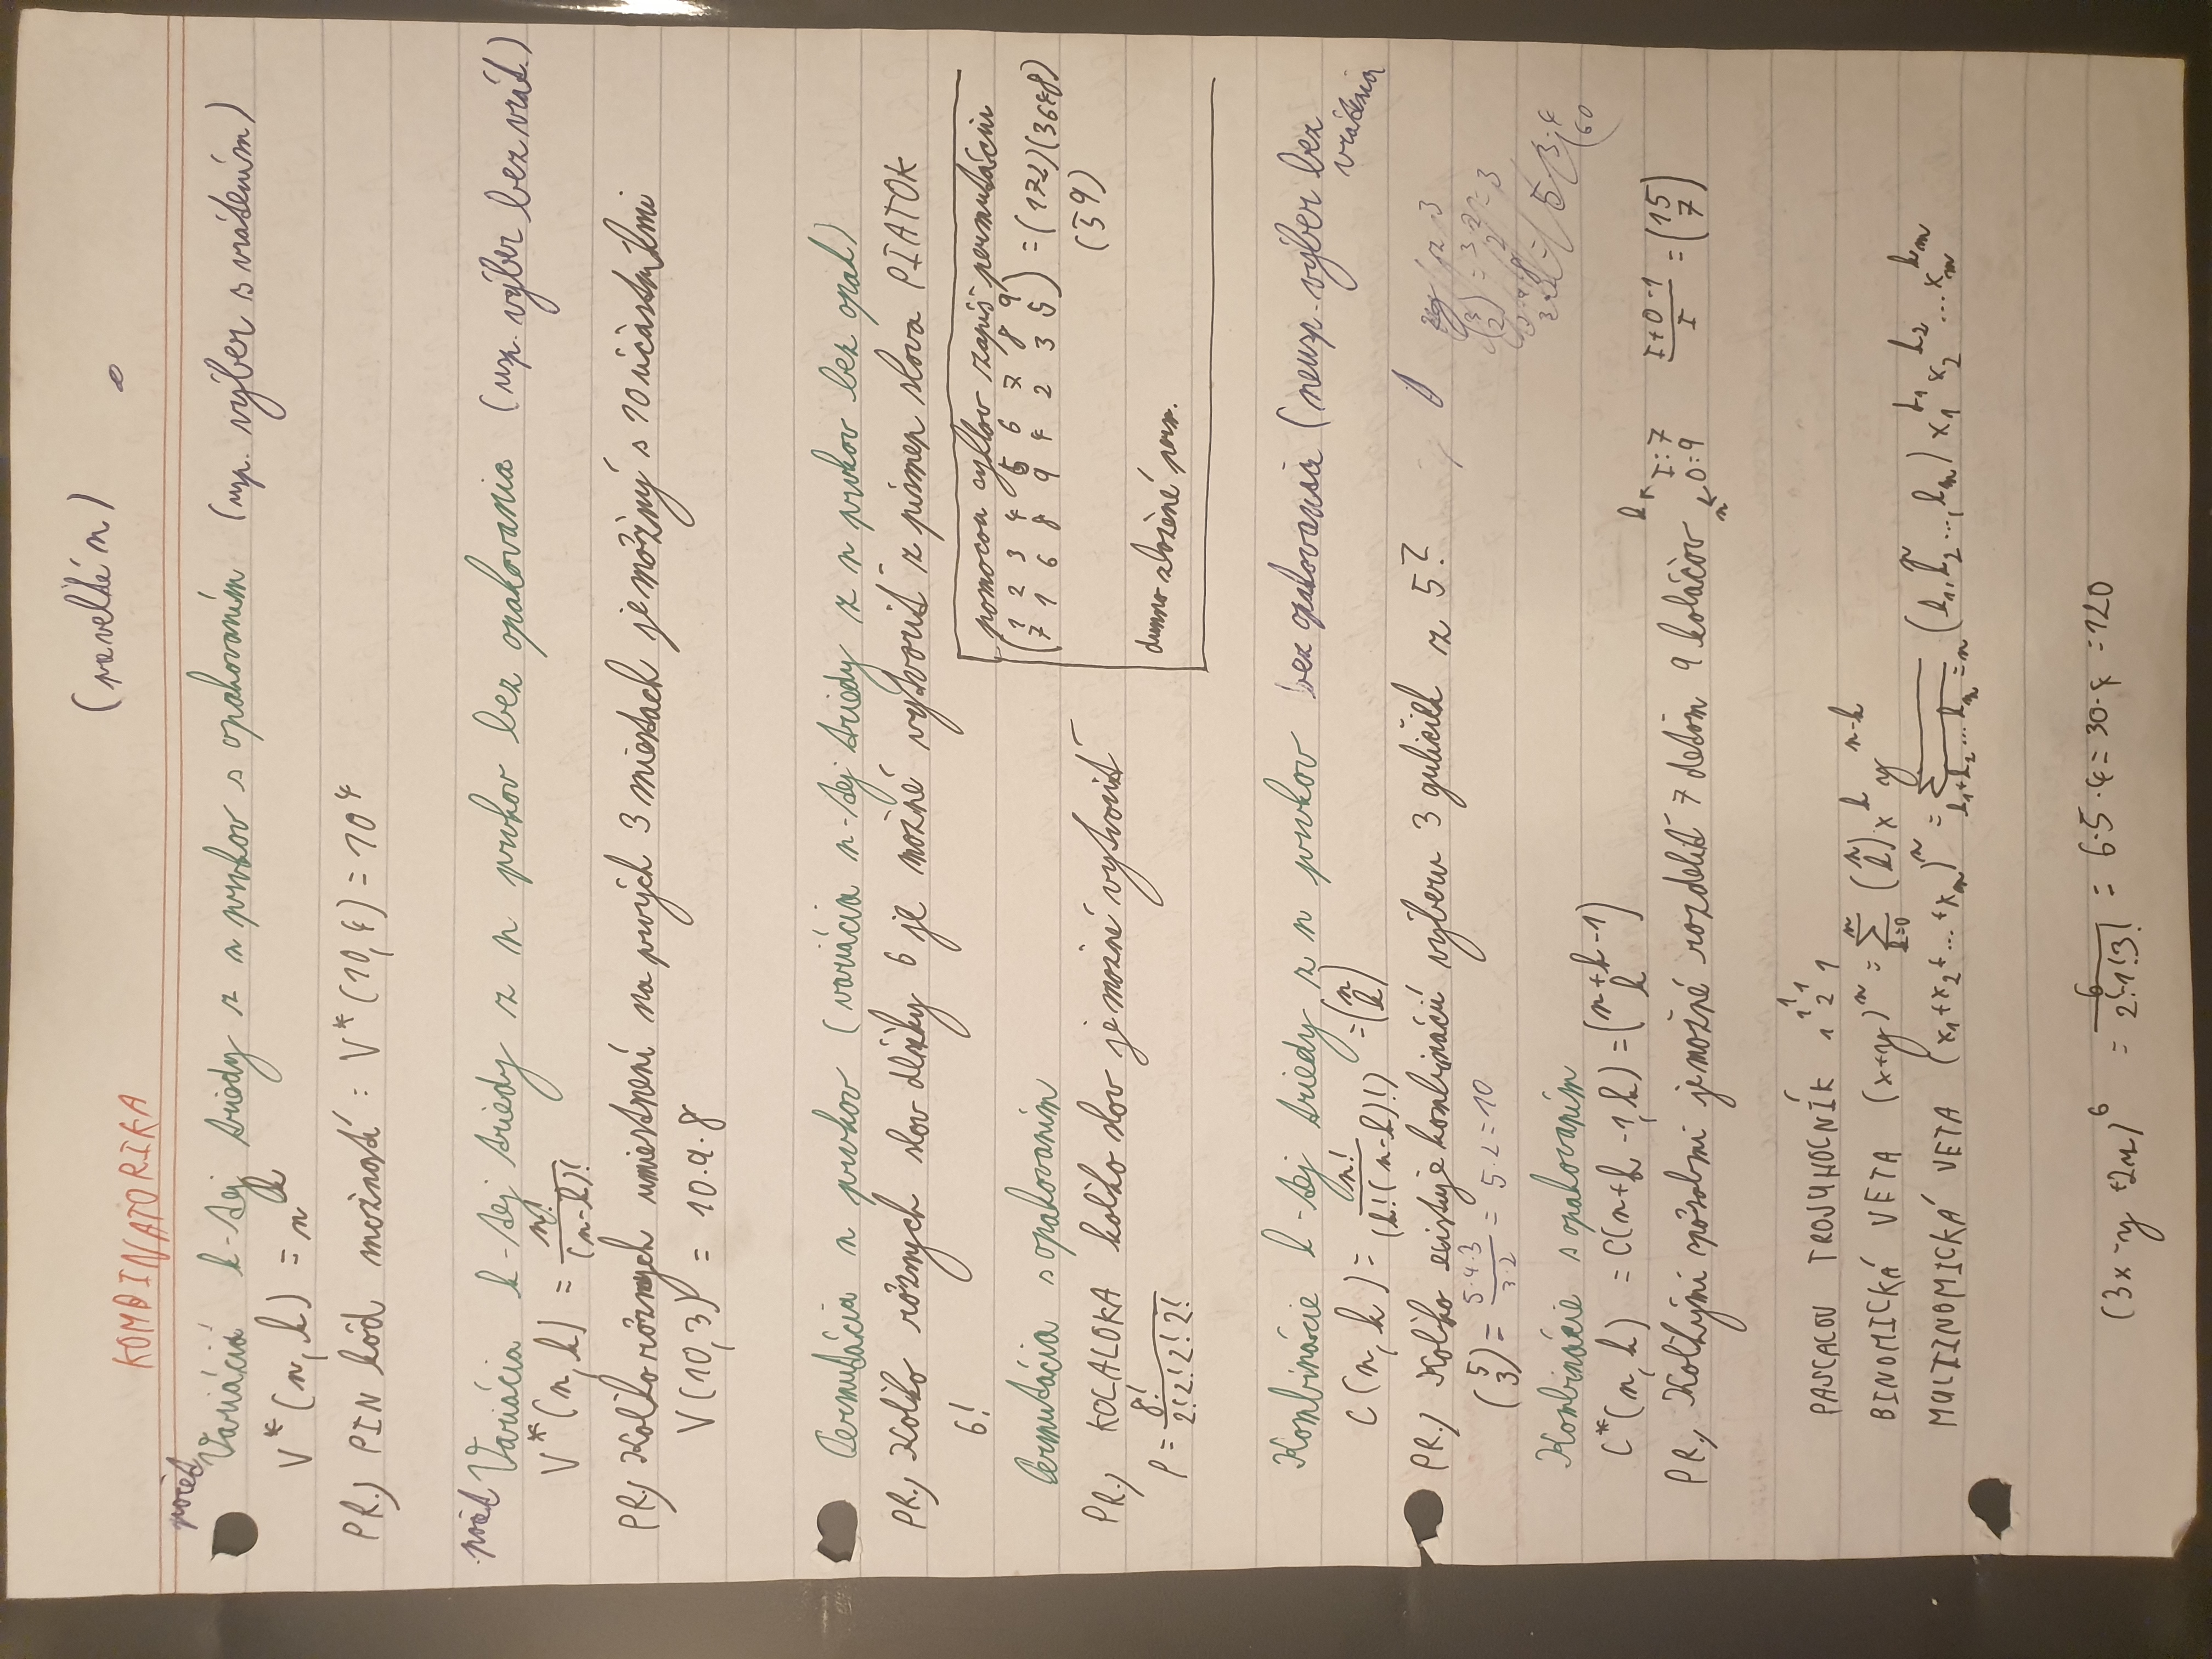 KOMBINATORIKA
počet Variáciá k-tej triedy z n prvkov s opakovaním (usp. výber s vrátením)
V*(n, k) = n^k
PR.) PIN kód možností : V*(10, 4) = 10^4
počet Variácia k-tej triedy z n prvkov bez opakovania (usp. výber bez vrát.)
V*(n, k) = n!/(n-k)!
PR.) Koľko rôznych umiestnení na prvých 3 miestach je môžný s 10 účastníkmi
V(10, 3) = 10·9·8
Permutácia n prvkov (variácia n-tej triedy z n prvkov bez opak)
PR.) Koľko rôznych slov dĺžky 6 je možné vytvoriť z písmen slova PIATOK
6!
pomocou cyklov zapíš permutáciu
(1 2 3 4 5 6 7 8 9
7 1 6 8 9 4 2 3 5) = (172)(3648)
(59)
dunno zložené perm.
Permutácia s opakovaním
PR.) KOLALOKA koľko slov je možné vytvoriť
P = 8!/(2!2!2!2!)
Kombinácie k-tej triedy z n prvkov bez opakovania (neusp. výber bez
vrátenia
C(n, k) = n!/(k!(n-k)!) = (n k)
PR.) Koľko existuje kombinácií výberu 3 guličiek z 5?
(5 3) = 5·4·3/3·2 = 5·2=10
Kombinácie s opakovaním
C*(n, k) = C(n+k-1, k) = (n+k-1 k)
PR., Koľkými spôsobmi je možné rozdeliť 7 deťom 9 koláčov
k I:7
n O:9
I+O-1/I = (15 7)
PASCALOV TROJUHOLNÍK 1
1 1
1 2 1
BINOMICKÁ VETA (x+y)^n = Σ k=0 n (n k) x^k y^n-k
MULTINOMICKÁ VETA (x1+x2+...+xm)^n = Σ k1+k2...km=n (n k1,k2...,km) x1^k1 x2^k2 ... xm^km
(3x-y+2z)^6 = 6/2!·1!3! = 6·5·4=30·4=120